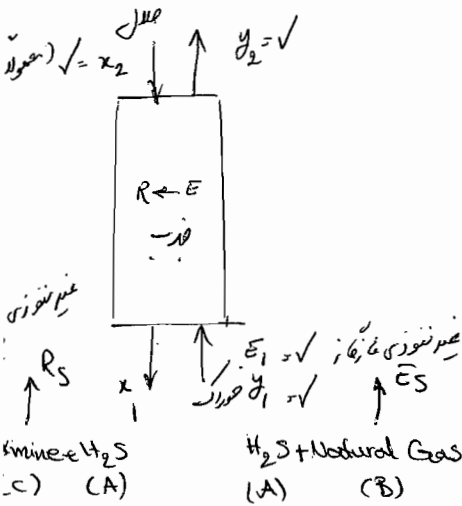 حلال
y₂ = ✓
✓ = x₂ (معمولاً
R ← E
جذب
غیر نفوذی
R_S
x₁
E₁ = ✓
خوراک y₁ = ✓
غیر نفوذی فاز گاز
E_S
Amine + H₂S
H₂S + Natural Gas
C) (A)
(A) (B)